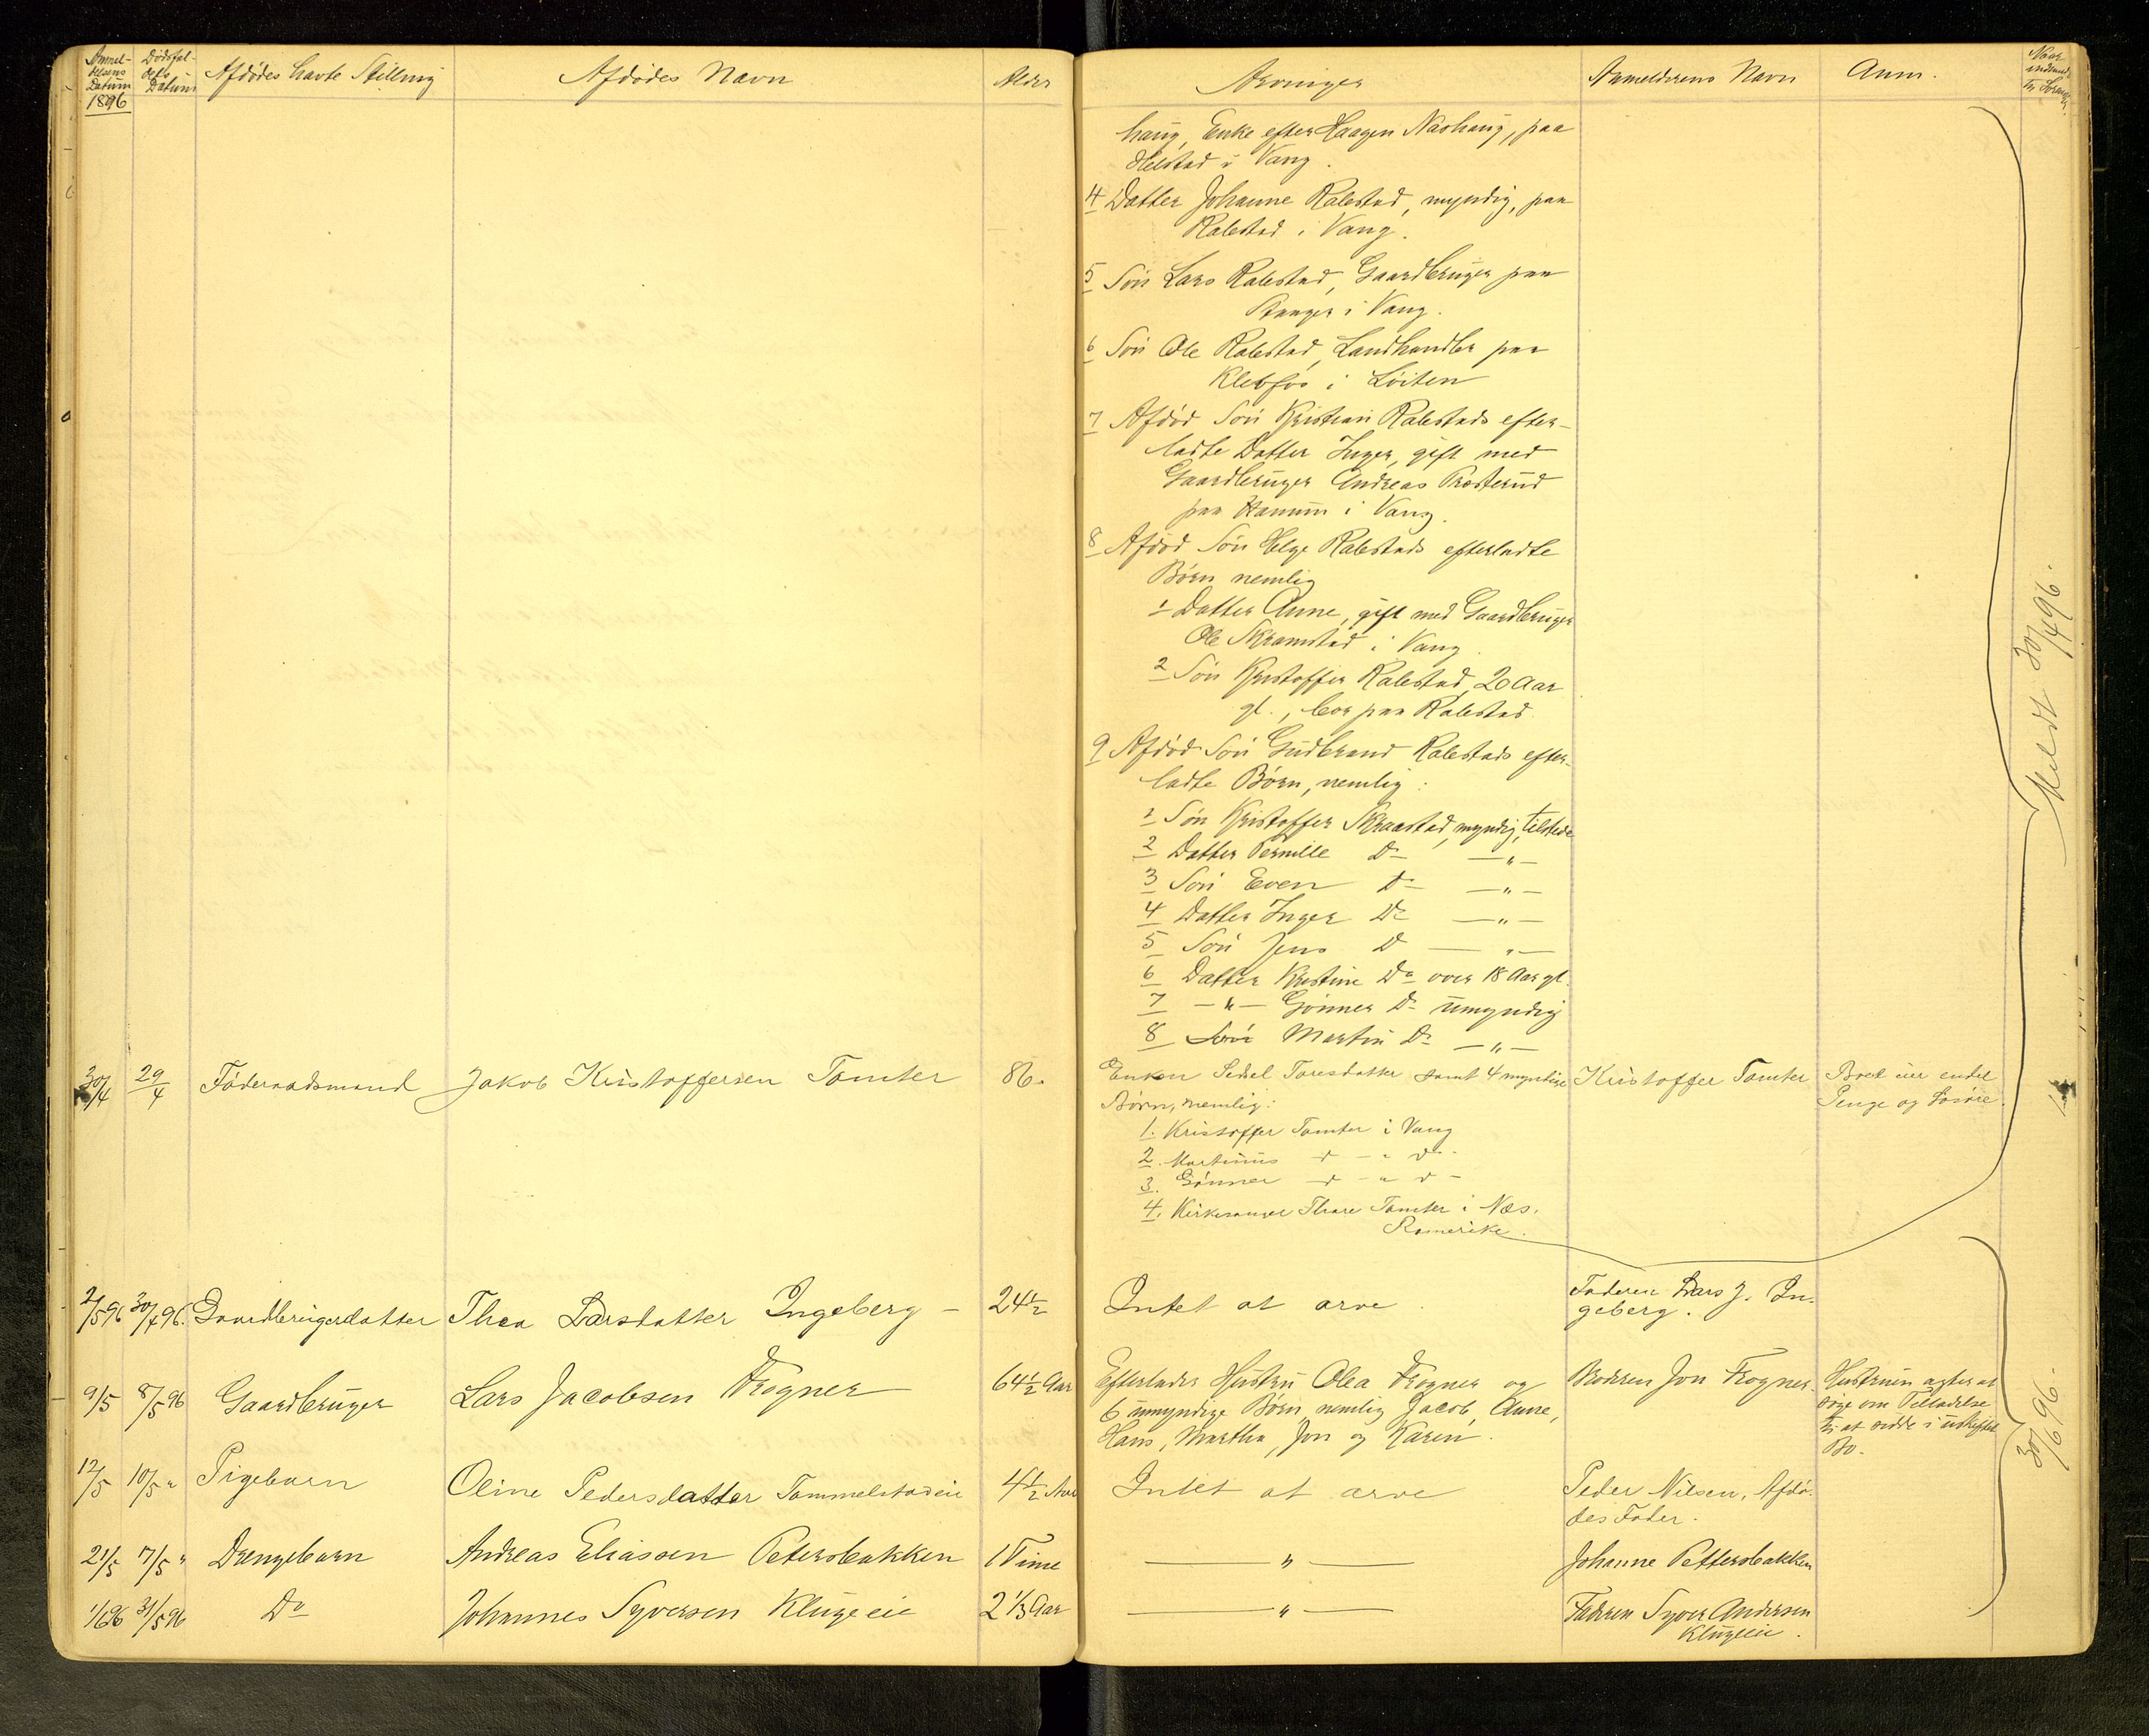 Anmel-
delsens
Datum
1896
Dødsfal-
dets
Datum
Afdødes havte Stilling
Afdødes Navn
Alder
Arvinger
Anmelderens Navn
Anm.
Naar
indsendt
til Sorensk.
haug, Enke efter Haagen Nashaug, paa
Helstad i Vang.
4 Datter Johanne Rabstad, myndig, paa
Rabstad i Vang.
5 Søn Lars Rabstad, Gaardbruger paa
i Vang.
6 Søn Ole Rabstad, Landhandler paa
Klebfos i Löiten
7 Afdød Søn Kristian Rabstads efter-
ladte Datter Inger, gift med
Gaardbruger Andreas Præsterud
paa Hanum i Vang.
8 Afdød Søn Helge Rabstads efterladte
Børn nemlig
1 Datter Anne, gift med Gaardbruger
Ole Skramstad i Vang.
2 Søn Kristoffer Rabstad, 20 Aar
gl., bor paa Rabstad.
9 Afdød Søn Gudbrand Rabstads efter-
ladte Børn, nemlig:
1 Søn Kristoffer Skraastad, myndig, tilstede
2 Datter Pernille Do — „ —
3 Søn Even Do — „ —
4 Datter Inger Do — „ —
5 Søn Jens D — „ —
6 Datter Kristine Do over 18 Aar gl.
7 — „ — Gønner Do umyndig
8 Søn Martin Do — „ —
30/4 29/4 Föderaadsmand Jakob Kristoffersen Tomter 86.
Enken Sidsel Toresdatter samt 4 myndige
Børn, nemlig:
1. Kristoffer Tomter i Vang
2. Martinus d - „ do
3. Gønner d - „ d -
4. Kirkesanger Thore Tomter i Næs.
Romerike.
Kristoffer Tomter
Boet eier endel
Penge og Løsøre.
Meldt 30/4 96.
2/5 96 30/4 96. Gaardbrugerdatter Thea Larsdatter Ingeberg — 24 1/2
Intet at arve.
Faderen Lars J. In-
geberg.
9/5 8/5 96 Gaardbruger Lars Jacobsen Frogner 64 1/2 Aar
Efterlader Hustru Olea Frogner og
6 umyndige Børn nemlig Jacob, Anne,
Hans, Martha, Jon og Karen.
Broderen Jon Frogner.
Hustruen agter at
søge om Tilladelse
til at sidde i uskiftet
Bo.
12/5 10/5 „ Pigebarn Oline Pedersdatter Tommelstadeie 4 1/2 Aar
Intet at arve
Peder Nilsen, Afdø-
des Fader.
21/5 7/5 „ Drengebarn Andreas Eliassen Petersbakken 1 Time
— „ —
Johanne Pettersbakken
1/6 96 31/5 96 Do Johannes Syversen Klugeeie 2 1/3 Aar
— „ —
Faderen Syver Andersen
Klugeeie.
30/6 96.